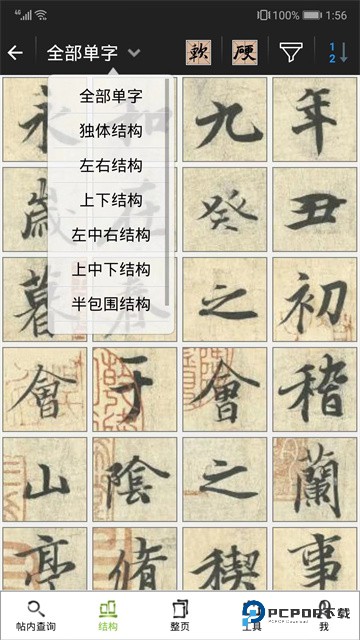 100% 1:56
全部单字 軟 硬 1 2
全部单字
独体结构
左右结构
上下结构
左中右结构
上中下结构
半包围结构
永 和 九 年
歲 在 癸 丑
暮 春 之 初
會 于 會 稽
山 陰 之 蘭
亭 脩 稧 事
帖内查询 结构 整页 工具 我
PCPOP下载